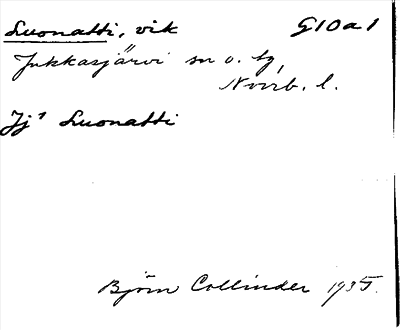 Luonatti, vik G10a1
Jukkasjärvi sn o. tg,
Norrb. l.
Jj¹ Luonatti
Björn Collinder 1935.